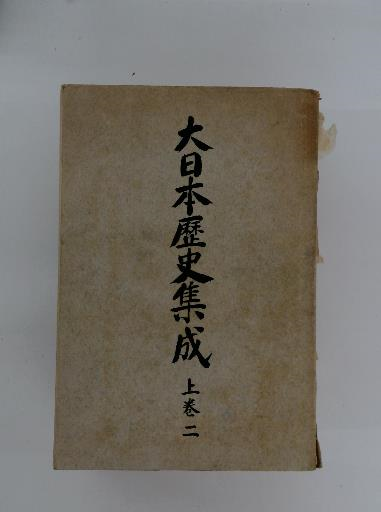 大日本歷史集成
上巻二